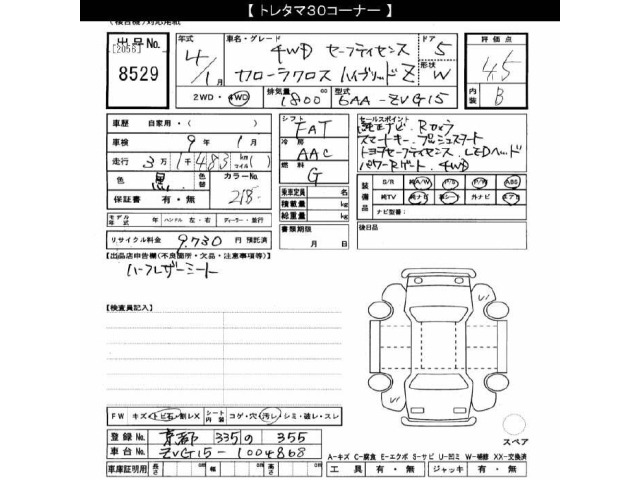 【 トレタマ30コーナー 】
(検台機)対応用紙
出品No.
[2056]
8529
年式
4/1月
車名・グレード
4WD セーフティセンス
カローラクロス ハイブリッドZ
ドア
5
形状
W
評価点
4.5
内装
B
2WD・4WD
排気量
1800 cc
型式
6AA-ZVG15
車歴 自家用・( )
車検 9年 1月
走行 3万1千483 km マイル ( )
色 黒 色替 カラーNo. 218
保証書 有・無
モデル年式 年 ハンドル 左・右 ディーラー・並行
リサイクル料金 9,730 円 預託済
シフト
FAT
冷房
AAC
燃料
G
乗車定員 名
積載量 kg
総重量 kg
書類期限
月 日
セールスポイント
純正ナビ、Rカメラ
スマートキー、プッシュスタート
トヨタセーフティセンス、LEDヘッド
パワーRゲート、4WD
装備品
S/R 純A/W P/S P/W ABS
純TV 純ナビ 革シート 外ナビ エアB
ナビ型番:
後日品
【出品店申告欄(不良箇所・欠品・注意事項等)】
ハーフレザーシート
【検査員記入】
FW キズ・トビ石・割レX シート内装 コゲ・穴・汚レ・シミ・破レ・スレ
登録No. 京都 335 の 355
車台No. ZVG15-1004868
車庫証明用 長さ 幅 高さ
スペア
A-キズ C-腐食 E-エクボ S-サビ U-凹ミ W-補修 XX-交換済
工具 有・無 ジャッキ 有・無